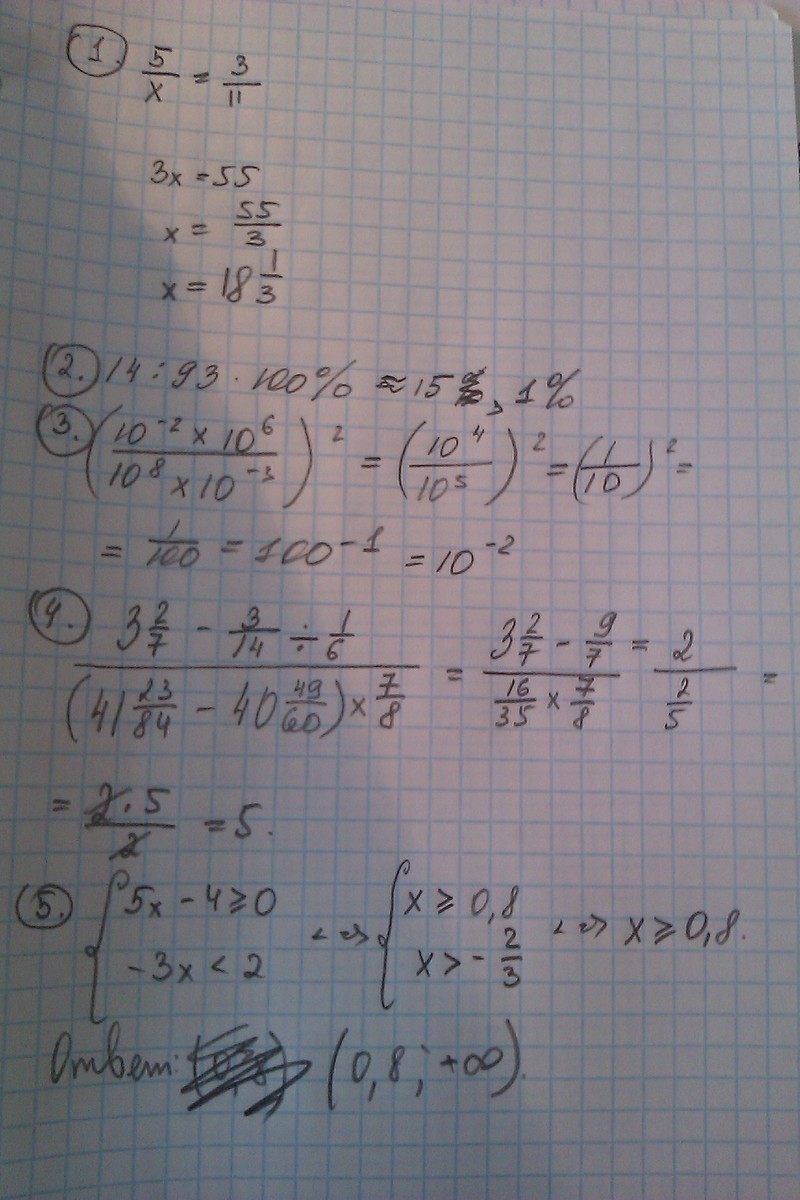 1. 5/x = 3/11
3x = 55
x = 55/3
x = 18 1/3
2. 14 : 93 · 100% ≈ 15,1%
3. (10⁻² × 10⁶ / 10⁸ × 10⁻³)² = (10⁴/10⁵)² = (1/10)² =
= 1/100 = 100⁻¹ = 10⁻²
4. (3 2/7 − 3/14 ÷ 1/6) / ((41 23/84 − 40 49/60) × 7/8) = (3 2/7 − 9/7) / (16/35 × 7/8) = 2 / (2/5) =
= 2·5/2 = 5.
5. { 5x − 4 ⩾ 0 <=> { x ⩾ 0,8 <=> x ⩾ 0,8.
−3x < 2 x > −2/3
Ответ: (0,8; +∞).